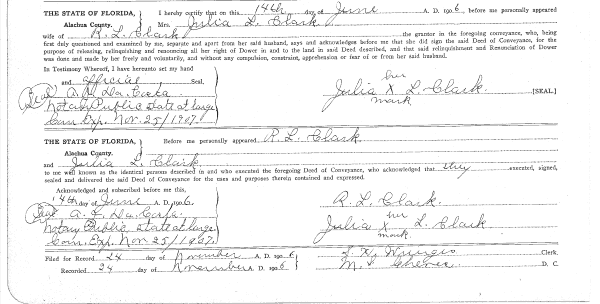 THE STATE OF FLORIDA, } I hereby certify that on this 14th day of June A. D. 190 6, before me personally appeared
Alachua County. Mrs. Julia L. Clark
wife of R. L. Clark the grantor in the foregoing conveyance, who, being
first duly questioned and examined by me, separate and apart from her said husband, says and acknowledges before me that she did sign the said Deed of Conveyance, for the
purpose of releasing, relinquishing and renouncing all her right of Dower in and to the land in said Deed described, and that said relinquishment and Renunciation of Dower
was done and made by her freely and voluntarily, and without any compulsion, constraint, apprehension or fear of or from her said husband.
In Testimony Whereof, I have hereunto set my hand
and official Seal,
Seal A. L. Da Costa
Notary Public state at large
Com. Exp. Nov. 25/1907.
her
Julia X L. Clark [SEAL]
mark
THE STATE OF FLORIDA, } Before me personally appeared R. L. Clark
Alachua County.
and Julia L. Clark
to me well known as the identical persons described in and who executed the foregoing Deed of Conveyance, who acknowledged that they executed, signed,
sealed and delivered the said Deed of Conveyance for the uses and purposes therein contained and expressed.
Acknowledged and subscribed before me this,
14th day of June A. D. 190 6.
Seal A. L. Da Costa
Notary Public state at large
Com. Exp. Nov. 25/1907.
R. L. Clark
her
Julia X L. Clark
mark
Filed for Record 24 day of November A. D. 190 6 Clerk.
Recorded 24 day of November A. D. 190 6 D. C.